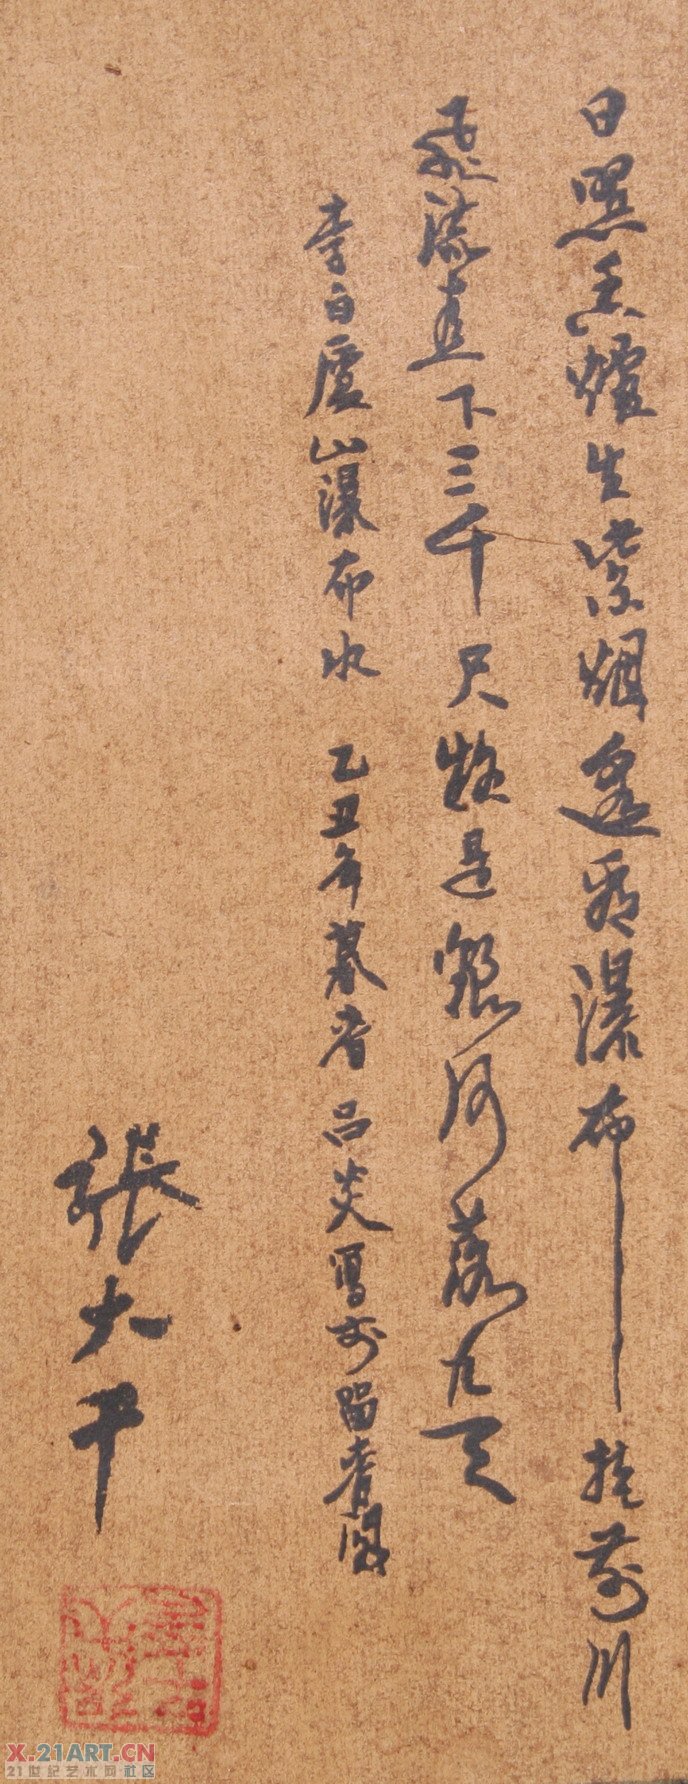 日照香爐生紫烟遙看瀑布挂前川
飛流直下三千尺疑是銀河落九天
李白廬山瀑布水 乙丑年暮春 呂炎寫於留香閣
張大千
X.21ART.CN
21世纪艺术网社区